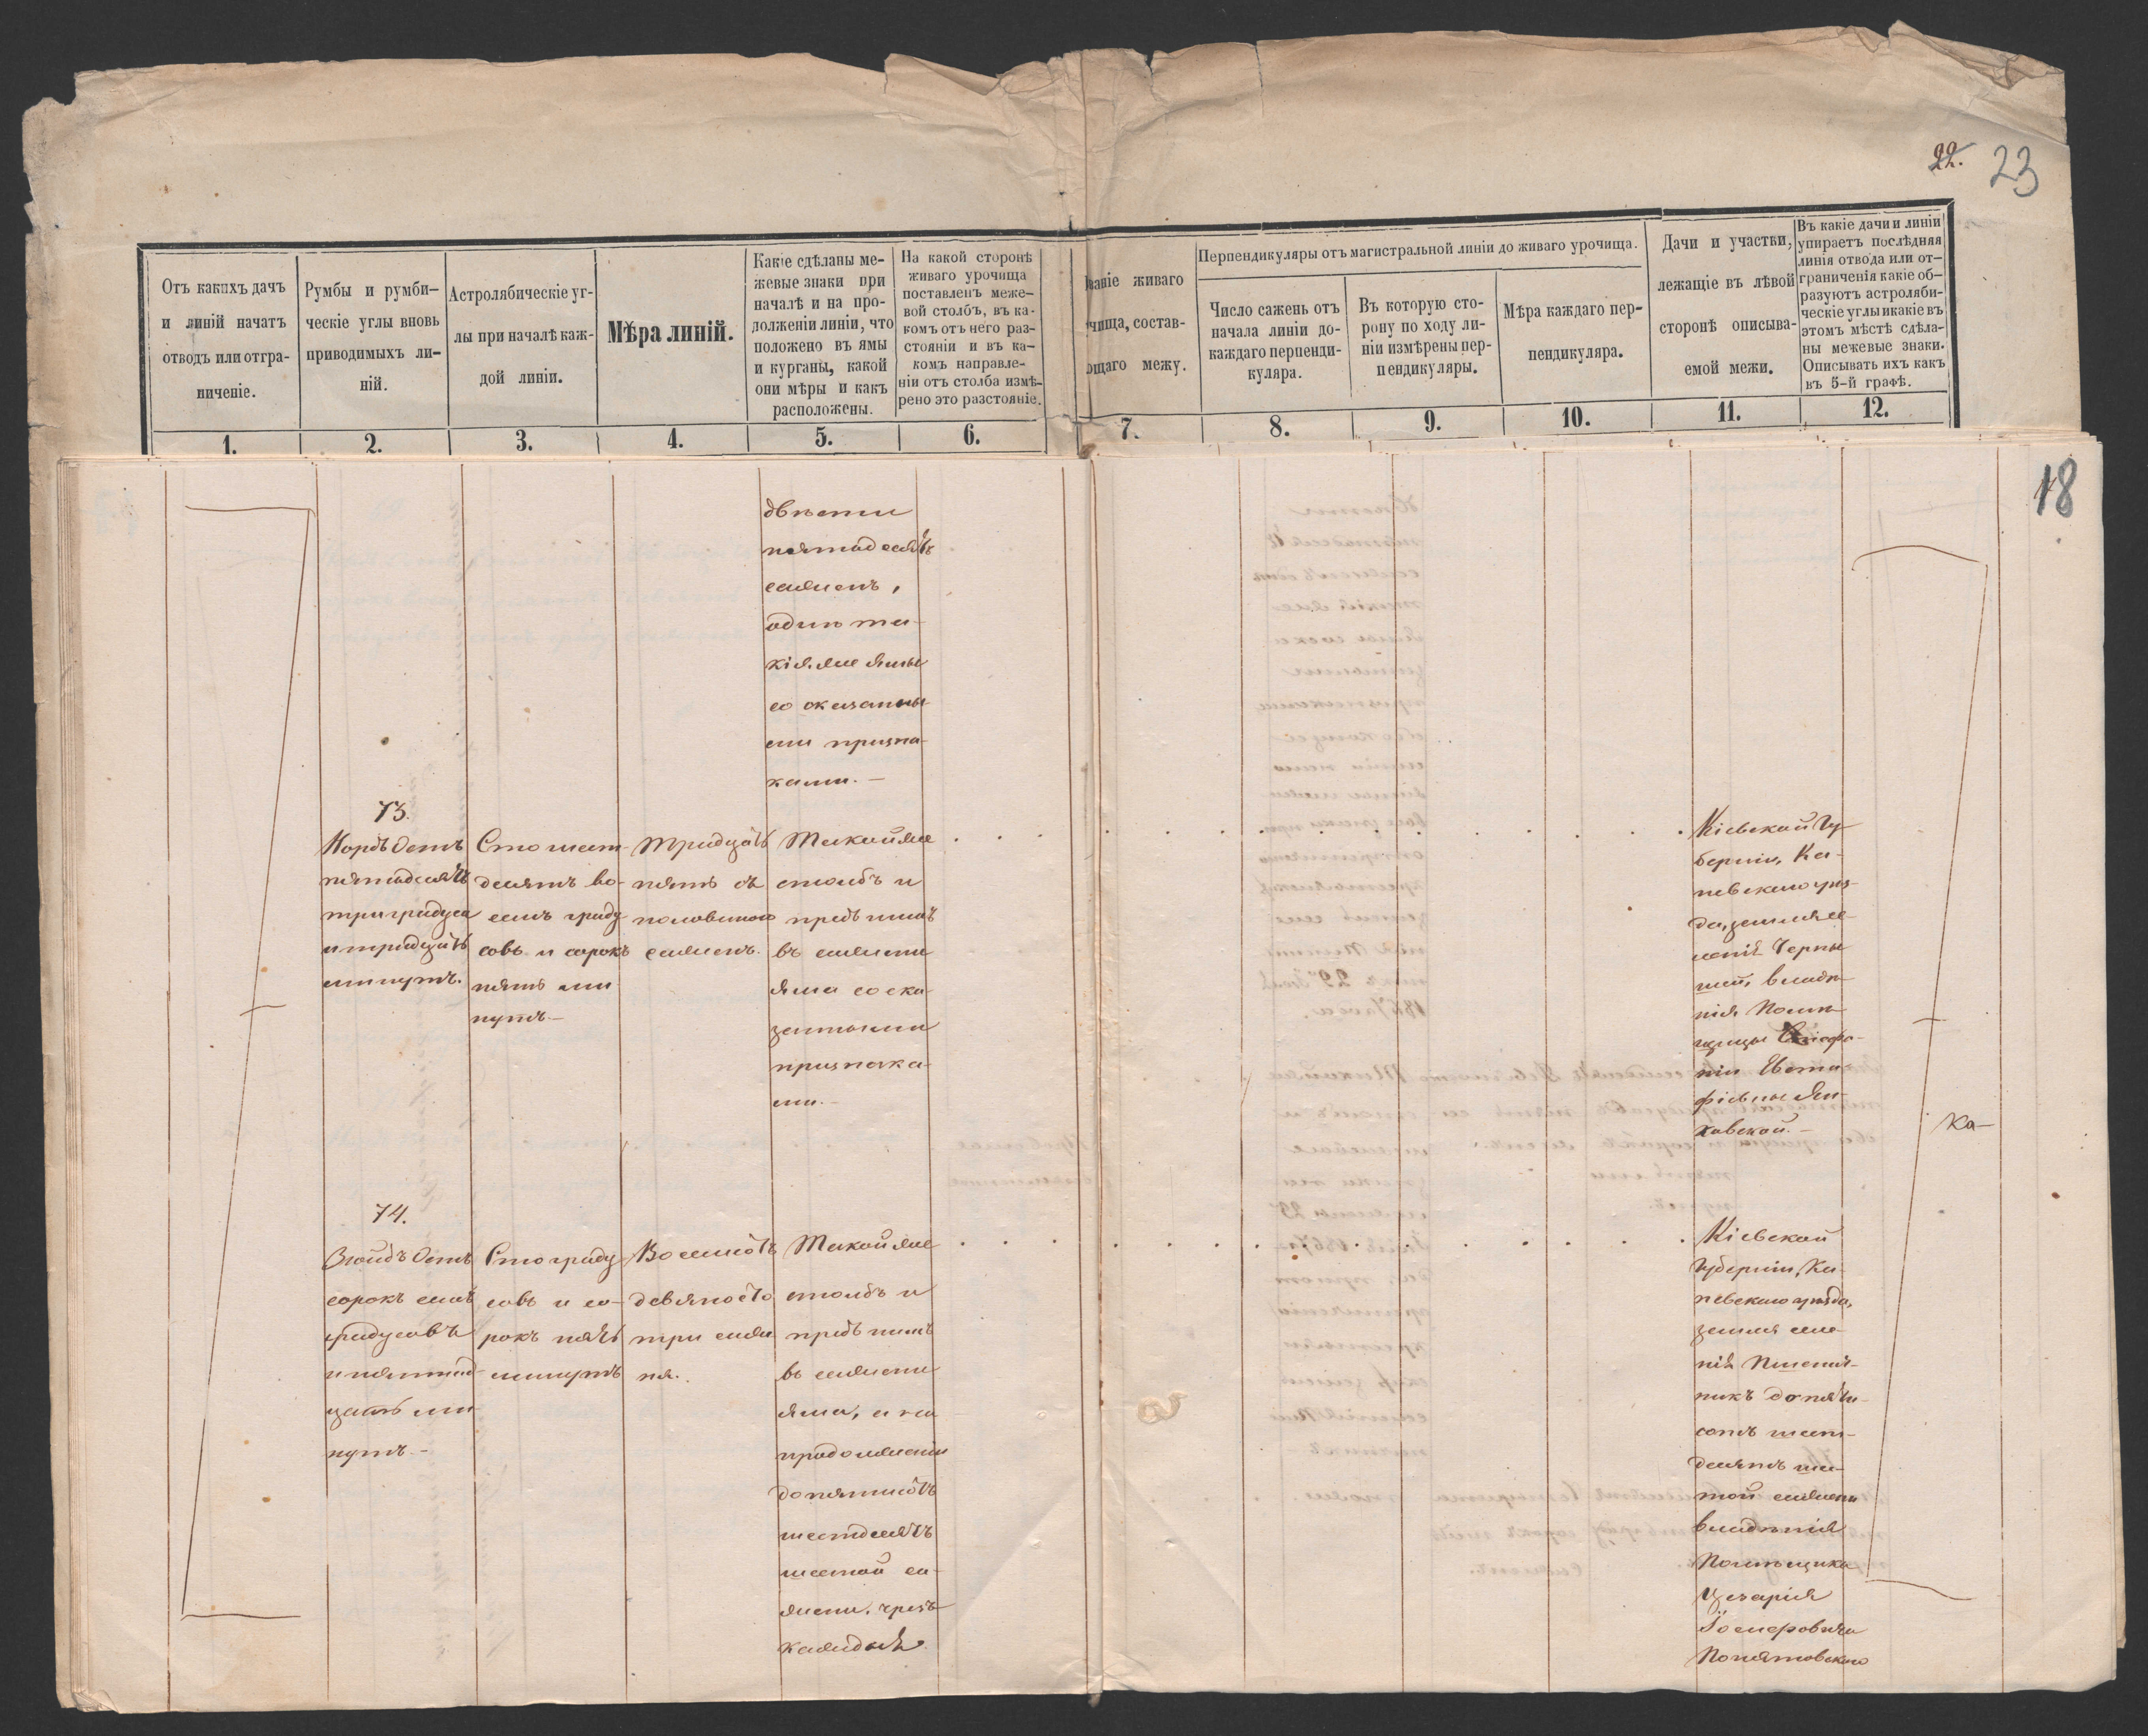 22. 23
Отъ какихъ дачъ
и линій начатъ
отводъ или отгра-
ниченіе.
Румбы и румби-
ческіе углы вновь
приводимыхъ ли-
ній.
Астролябическіе уг-
лы при началѣ каж-
дой линіи.
Мѣра линій.
Какіе сдѣланы ме-
жевые знаки при
началѣ и на про-
долженіи линіи, что
положено въ ямы
и курганы, какой
они мѣры и какъ
расположены.
На какой сторонѣ
живаго урочища
поставленъ меже-
вой столбъ, въ ка-
комъ отъ него раз-
стояніи и въ ка-
комъ направле-
ніи отъ столба измѣ-
рено это разстояніе.
ваніе живаго
чища, состав-
ющаго межу.
Перпендикуляры отъ магистральной линіи до живаго урочища.
Число сажень отъ
начала линіи до
каждаго перпенди-
куляра.
Въ которую сто-
рону по ходу ли-
ніи измѣрены пер-
пендикуляры.
Мѣра каждаго пер-
пендикуляра.
Дачи и участки,
лежащіе въ лѣвой
сторонѣ описыва-
емой межи.
Въ какіе дачи и линіи
упираетъ послѣдняя
линія отвода или от-
граниченія какіе об-
разуютъ астроляби-
ческіе углы и какіе въ
этомъ мѣстѣ сдѣла-
ны межевые знаки.
Описывать ихъ какъ
въ 5-й графѣ.
1. 2. 3. 4. 5. 6. 7. 8. 9. 10. 11. 12.
18
двѣсти
пятидесятъ
сажень,
одни та-
кія же ямы
со сказанны
ми призна-
ками.—
73.
Нордъ Остъ
пятьдесятъ
три градуса
и тридцать
минутъ.
Сто шест-
десятъ во-
семь граду
совъ и сорокъ
пять ми
нутъ.—
Тридцать
пять съ
половиною
сажень.
Такой же
столбъ и
предъ нимъ
въ сажени
яма со ска
занными
признака-
ми.—
Кіевской Гу-
берніи, Ка-
невскаго уѣз-
да, земля се-
ленія Черны
шей, владѣ-
нія Помѣ-
щицы
ніи Евста-
фіевны Ян-
ковской.—
74.
Зюйдъ Остъ
сорокъ семь
градусовъ
и пятнад-
цать ми
нутъ.—
Сто граду
совъ и со-
рокъ пять
минутъ
Восемсотъ
девяносто
три саже
ня.
Такой же
столбъ и
предъ нимъ
въ сажени
яма, а на
продолженіи
до пятисотъ
шестдесятъ
шестой са-
жени, чрезъ
каждыя
Кіевской
Губерніи, Ка-
невскаго уѣзда,
земля селе-
нія Пшенич-
никъ до пяти-
сотъ шест-
десятъ шес-
той сажени
владѣнія
Помѣщика
Цезарія
Іосифовича
Понятовскаго
Ка-